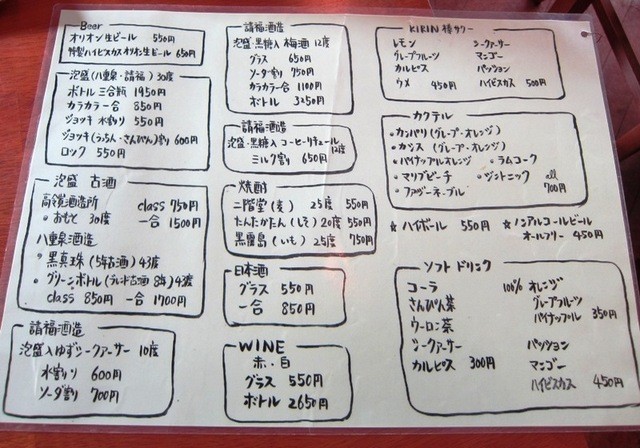 Beer
オリオン生ビール 550円
特製ハイビスカスオリオン生ビール 650円
泡盛(八重泉・請福) 30度
ボトル 三合瓶 1950円
カラカラ一合 850円
ジョッキ 水割り 550円
ジョッキ(うっちん・さんぴん)割り 600円
ロック 550円
泡盛 古酒
高嶺酒造所 class 750円
・おもと 30度 一合 1500円
八重泉酒造
・黒真珠(5年古酒) 43度
・グリーンボトル(ブレンド古酒 8年) 43度
class 850円 一合 1700円
請福酒造
泡盛入ゆずシークァーサー 10度
水割り 600円
ソーダ割り 700円
請福酒造
泡盛・黒糖入 梅酒 12度
グラス 650円
ソーダ割り 750円
カラカラ一合 1100円
ボトル 3250円
請福酒造
泡盛・黒糖入 コーヒーリキュール 12度
ミルク割り 650円
焼酎
二階堂(麦) 25度 550円
たんたかたん(しそ) 20度 550円
黒霧島(いも) 25度 750円
日本酒
グラス 550円
一合 850円
WINE
赤・白
グラス 550円
ボトル 2650円
KIRIN 樽サワー
レモン シークァーサー
グレープフルーツ マンゴー
カルピス パッション
ウメ 450円 ハイビスカス 500円
カクテル
・カンパリ(グレープ・オレンジ)
・カシス (グレープ・オレンジ)
・パイナップルオレンジ ・ラムコーク
・マリブピーチ ・ジントニック all
・ファジーネーブル 700円
☆ハイボール 550円 ☆ノンアルコールビール
オールフリー 450円
ソフトドリンク
コーラ 100% オレンジ
さんぴん茶 グレープフルーツ
ウーロン茶 パイナップル 350円
シークァーサー パッション
カルピス 300円 マンゴー
ハイビスカス 450円